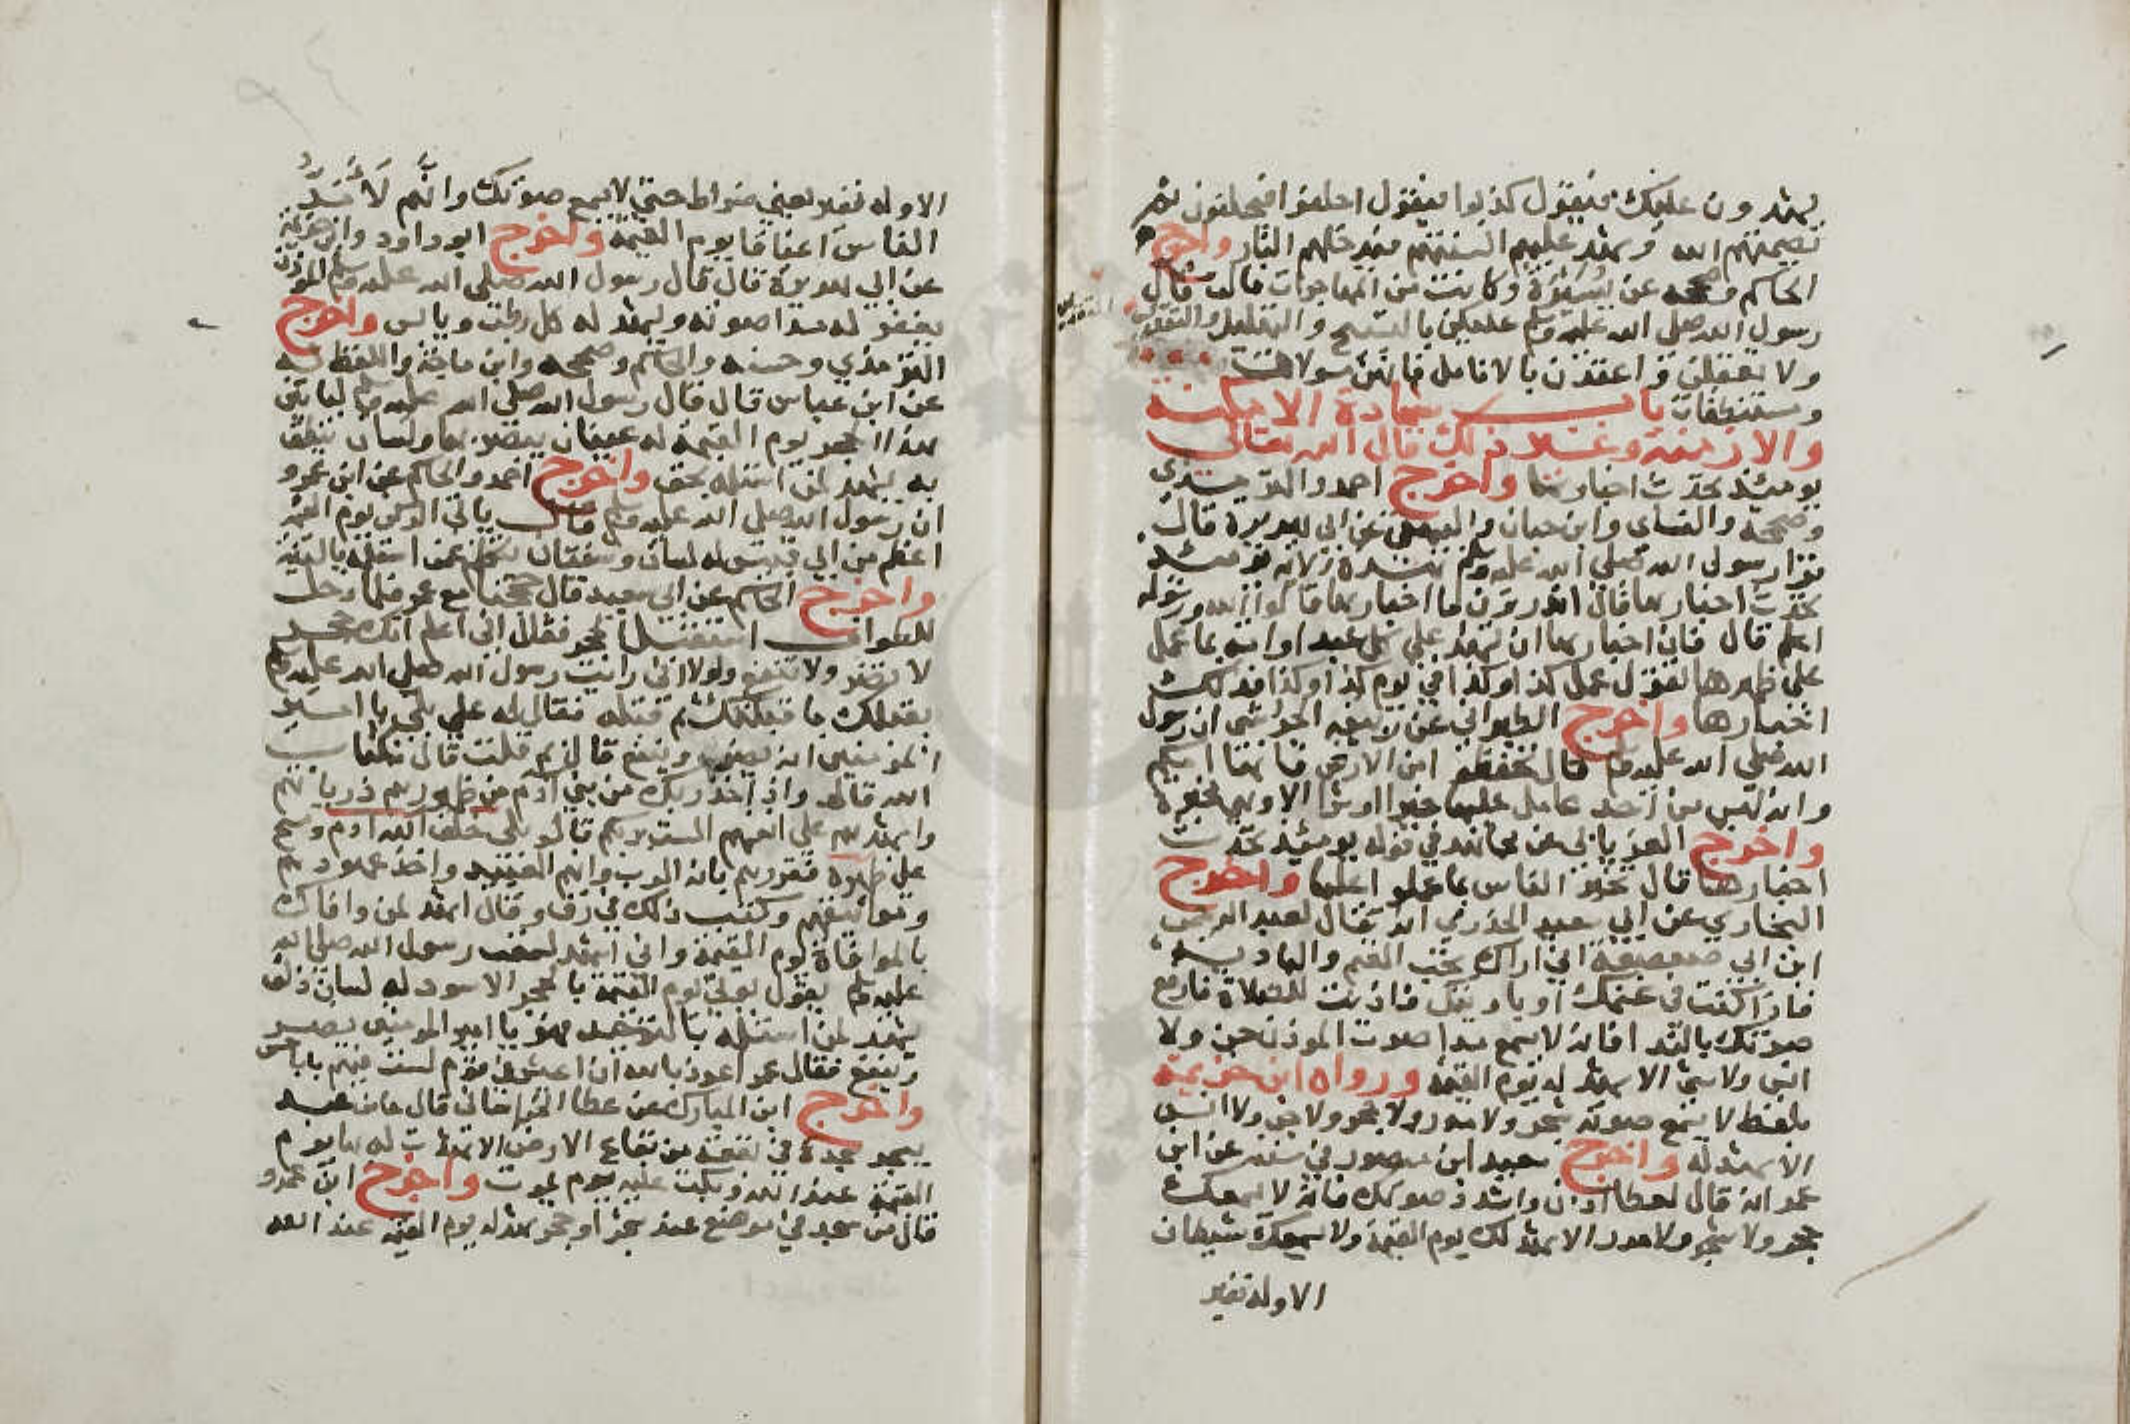 يشهدون عليك فيقول كذبوا فيقول احلفوا فيحلفون ثم
تصمتهم الله ويشهد عليهم السنتهم فيدخلهم النار واخرج
الحاكم وصححه عن يسيرة وكانت من المهاجرات قالت قال
رسول الله صلى الله عليه وسلم عليكن بالتسبيح والتهليل والتقديس
ولا تغفلن واعقدن بالانامل فانهن مسولات
ومستنطقات باب شهادة الامكنة
والازمنة وغير ذلك قال الله تعالى
يومئذ تحدث اخبارها واخرج احمد والترمذي
وصححه والنساى وابن حبان والبيهقي عن ابي هريرة قال
قرا رسول الله صلى الله عليه وسلم هذه الاية يومئذ
تحدث اخبارها قال اتدرون ما اخبارها قالوا الله ورسوله
اعلم قال فان اخبارها ان تشهد علي كل عبد او امة بما عمل
على ظهرها تقول عمل كذا وكذا في يوم كذا وكذا فذلك
اخبارها واخرج الطبراني عن ربيعه الجرشى ان رسول
الله صلى الله عليه وسلم قال تحفظو امن الارض فانها امكم
وانه ليس من احد عامل عليها خيرا او شرا الا وهي مخبرة
واخرج الفريابي عن مجاهد في قوله يومئذ تحدث
اخبارها قال تخبر الناس بما عملوا عليها واخرج
البخاري عن ابي سعيد الخدري انه قال لعبد الرحمن
ابن ابي صعصعة اني اراك تحب الغنم والبادية
فاذا كنت في غنمك او باديتك فاذنت للصلاة فارفع
صوتك بالندا فانه لا يسمع مدا صوت الموذن جن ولا
انس ولا شي الا يشهد له يوم القيمة ورواه ابن خزيمة
بلفظ لا يسمع صوته شجر ولا مدر ولا حجر ولا جن ولا انس
الا يشهد له واخرج سعيد ابن منصور في سننه عن ابن
عمر انه قال لعطا اذن واشدد صوتك فانه لا يسمعك
حجر ولا شجر ولا مدر الا يشهد لك يوم القيمة ولا يسمعك شيطان
الاوله نفير
الاوله نفير يعني ضراط حتي لا يسمع صوتك وانهم لا شد
الناس اعناقا يوم القيمة واخرج ابو داود وابن خزيمة
عن ابي هريرة قال قال رسول الله صلى الله عليه وسلم الموذن
يغفر له مدا صوته ويشهد له كل رطب ويابس واخرج
الترمذي وحسنه والحاكم وصححه وابن ماجة واللفظ له
عن ابن عباس قال قال رسول الله صلى الله عليه وسلم لياتين
هذا الحجر يوم القيمة له عينان يبصر بهما ولسان ينطق
به يشهد لمن استلمه بحق واخرج احمد والحاكم عن ابن عمرو
ان رسول الله صلى الله عليه وسلم قال ياتي الركن يوم القيمة
اعظم من ابي قبيس له لسان وشفتان يتكلم عمن استلمه بالنية
واخرج الحاكم عن ابي سعيد قال حججنا مع عمر فلما دخل
للطواف استقبل الحجر فقال اني اعلم انك حجر
لا تضر ولا تنفع ولولا اني رايت رسول الله صلى الله عليه وسلم
يقبلك ما قبلتك ثم قبله فقال له علي بلى يا امير
المومنين انه يضر وينفع قال بم قلت قال بكتاب
الله قال واذ اخذ ربك من بني آدم من ظهورهم ذرياتهم
واشهدهم على انفسهم الست بربكم قالو بلى خلق الله آدم ومسح
على ظهره فقررهم بانه الرب وانهم العبيد واخذ عهودهم
ومواثيقهم وكتب ذلك في رق وقال اشهد لمن وافاك
بالموافاة يوم القيمة واني اشهد لسمعت رسول الله صلى الله
عليه وسلم يقول يوتى يوم القيمة بالحجر الاسود له لسان ذلق
يشهد لمن استلمه بالتوحيد فهو يا امير المومنين يضر
وينفع فقال عمر اعوذ بالله ان اعيش في قوم لست فيهم يابا حسن
واخرج ابن المبارك عن عطا الخراساني قال ما من عبد
يسجد سجدة في بقعة من بقاع الارض الا شهدت له بها يوم
القيمة عند الله وبكت عليه يوم يموت واخرج ابن عمرو
قال من سجد في موضع عند شجر او حجر شهد له يوم القيمة عند الله